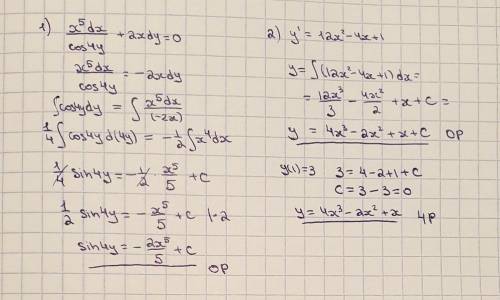 1) x⁵dx/cos4y + 2xdy = 0
x⁵dx/cos4y = -2xdy
∫cos4ydy = ∫ x⁵dx/(-2x)
1/4 ∫cos4yd(4y) = -1/2 ∫x⁴dx
1/4 sin4y = -1/2 x⁵/5 + C
1/2 sin4y = -x⁵/5 + C |·2
sin4y = -2x⁵/5 + C
OP
2) y' = 12x² - 4x + 1
y = ∫(12x² - 4x + 1)dx =
= 12x³/3 - 4x²/2 + x + C =
y = 4x³ - 2x² + x + C OP
y(1) = 3 3 = 4 - 2 + 1 + C
C = 3 - 3 = 0
y = 4x³ - 2x² + x 4P